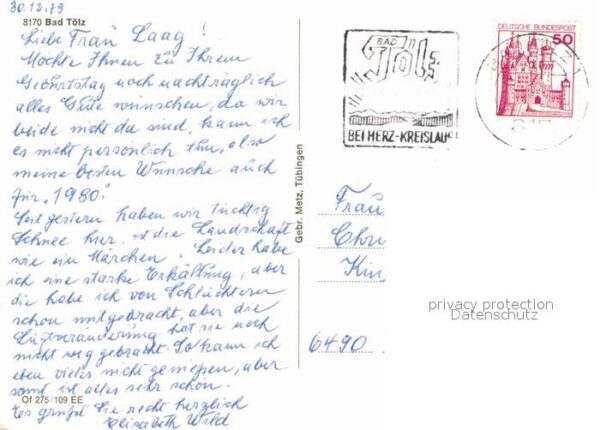 30.12.79
8170 Bad Tölz
Liebe Frau Laag!
Möchte Ihnen zu Ihrem
Geburtstag noch nachträglich
alles Gute wünschen, da wir
beide nicht da sind, kann ich
es nicht persönlich tun, also
meine besten Wünsche auch
für „1980."
Seit gestern haben wir tüchtig
Schnee hier, ist die Landschaft
wie ein Märchen. Leider habe
ich eine starke Erkältung, aber
die habe ich von Schlüchtern
schon mitgebracht, aber die
Luftveränderung hat sie noch
nicht weg gebracht. So kann ich
eben vieles nicht genießen, aber
sonst ist alles sehr schön.
Es grüßt Sie recht herzlich
Elisabeth Wild
Of 275/109 EE
Gebr. Metz, Tübingen
BAD
Tölz
BEI HERZ-KREISLAUF
DEUTSCHE BUNDESPOST
50
Frau
Chr
Kin
privacy protection
Datenschutz
6490